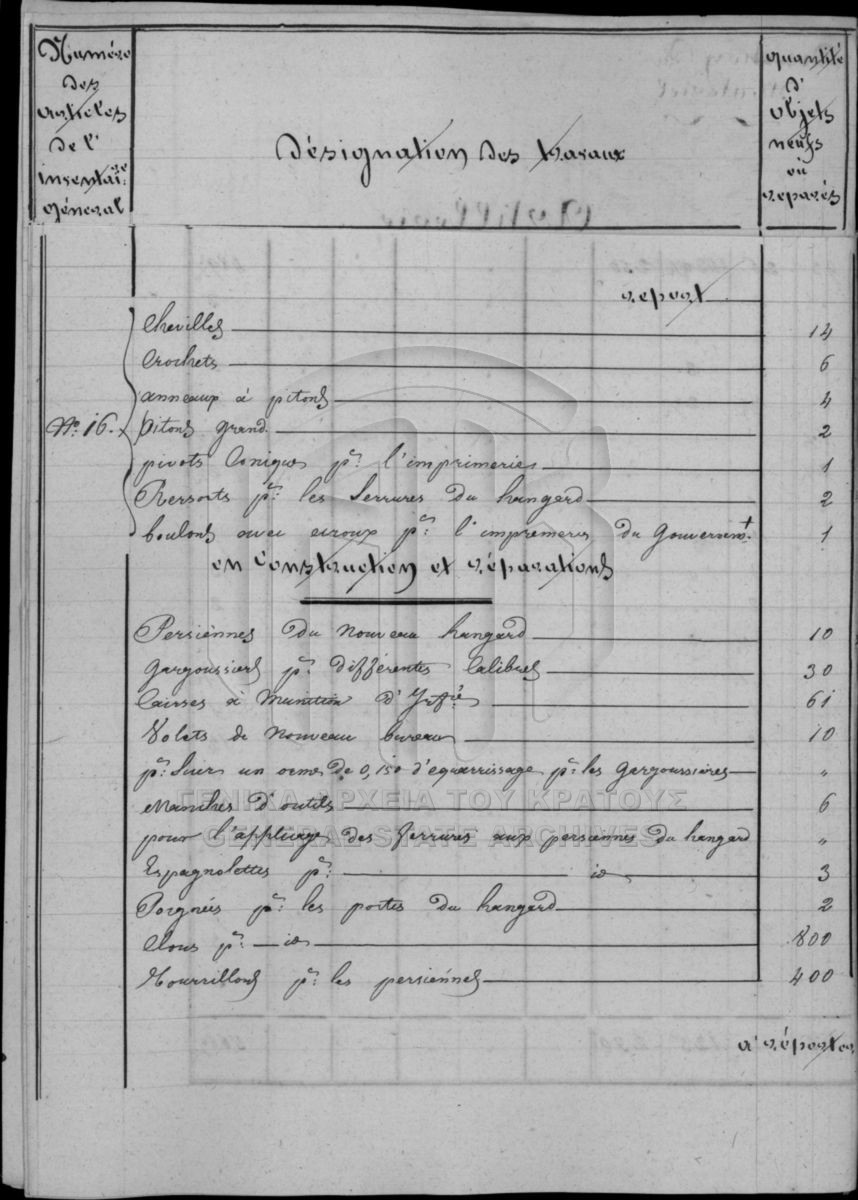 Numéro
des
articles
de l'
inventaire
général
désignation des travaux
quantité
d'
objets
neufs
ou
réparés
report
Chevilles 14
Crochets 6
anneaux à pitons 4
No. 16. Pitons grand. 2
pivots Coniques pr. l'imprimeries 1
Ressorts pr. les Serrures du hangard 2
boulons avec ecroux pr. l'impremerie du Gouvernemt. 1
en Construction et réparations
Persiénnes du nouveau hangard 10
Gargoussiers pr. différentes Calibres 30
Caisses à Munition d' 61
Volets de Nouveau bureau 10
pr. Scier un orme de 0,150 d'equarrissage pr. les Gargoussières "
Manches d'outils 6
pour l'appliage des ferrures aux persiennes du hangard "
Espagnolettes pr. id 3
Poignées pr. les portes du hangard 2
Clous pr. id 800
Tourrillons pr. les persiénnes 400
a réporter
ΓΕΝΙΚΑ ΑΡΧΕΙΑ ΤΟΥ ΚΡΑΤΟΥΣ
GENERAL STATE ARCHIVES